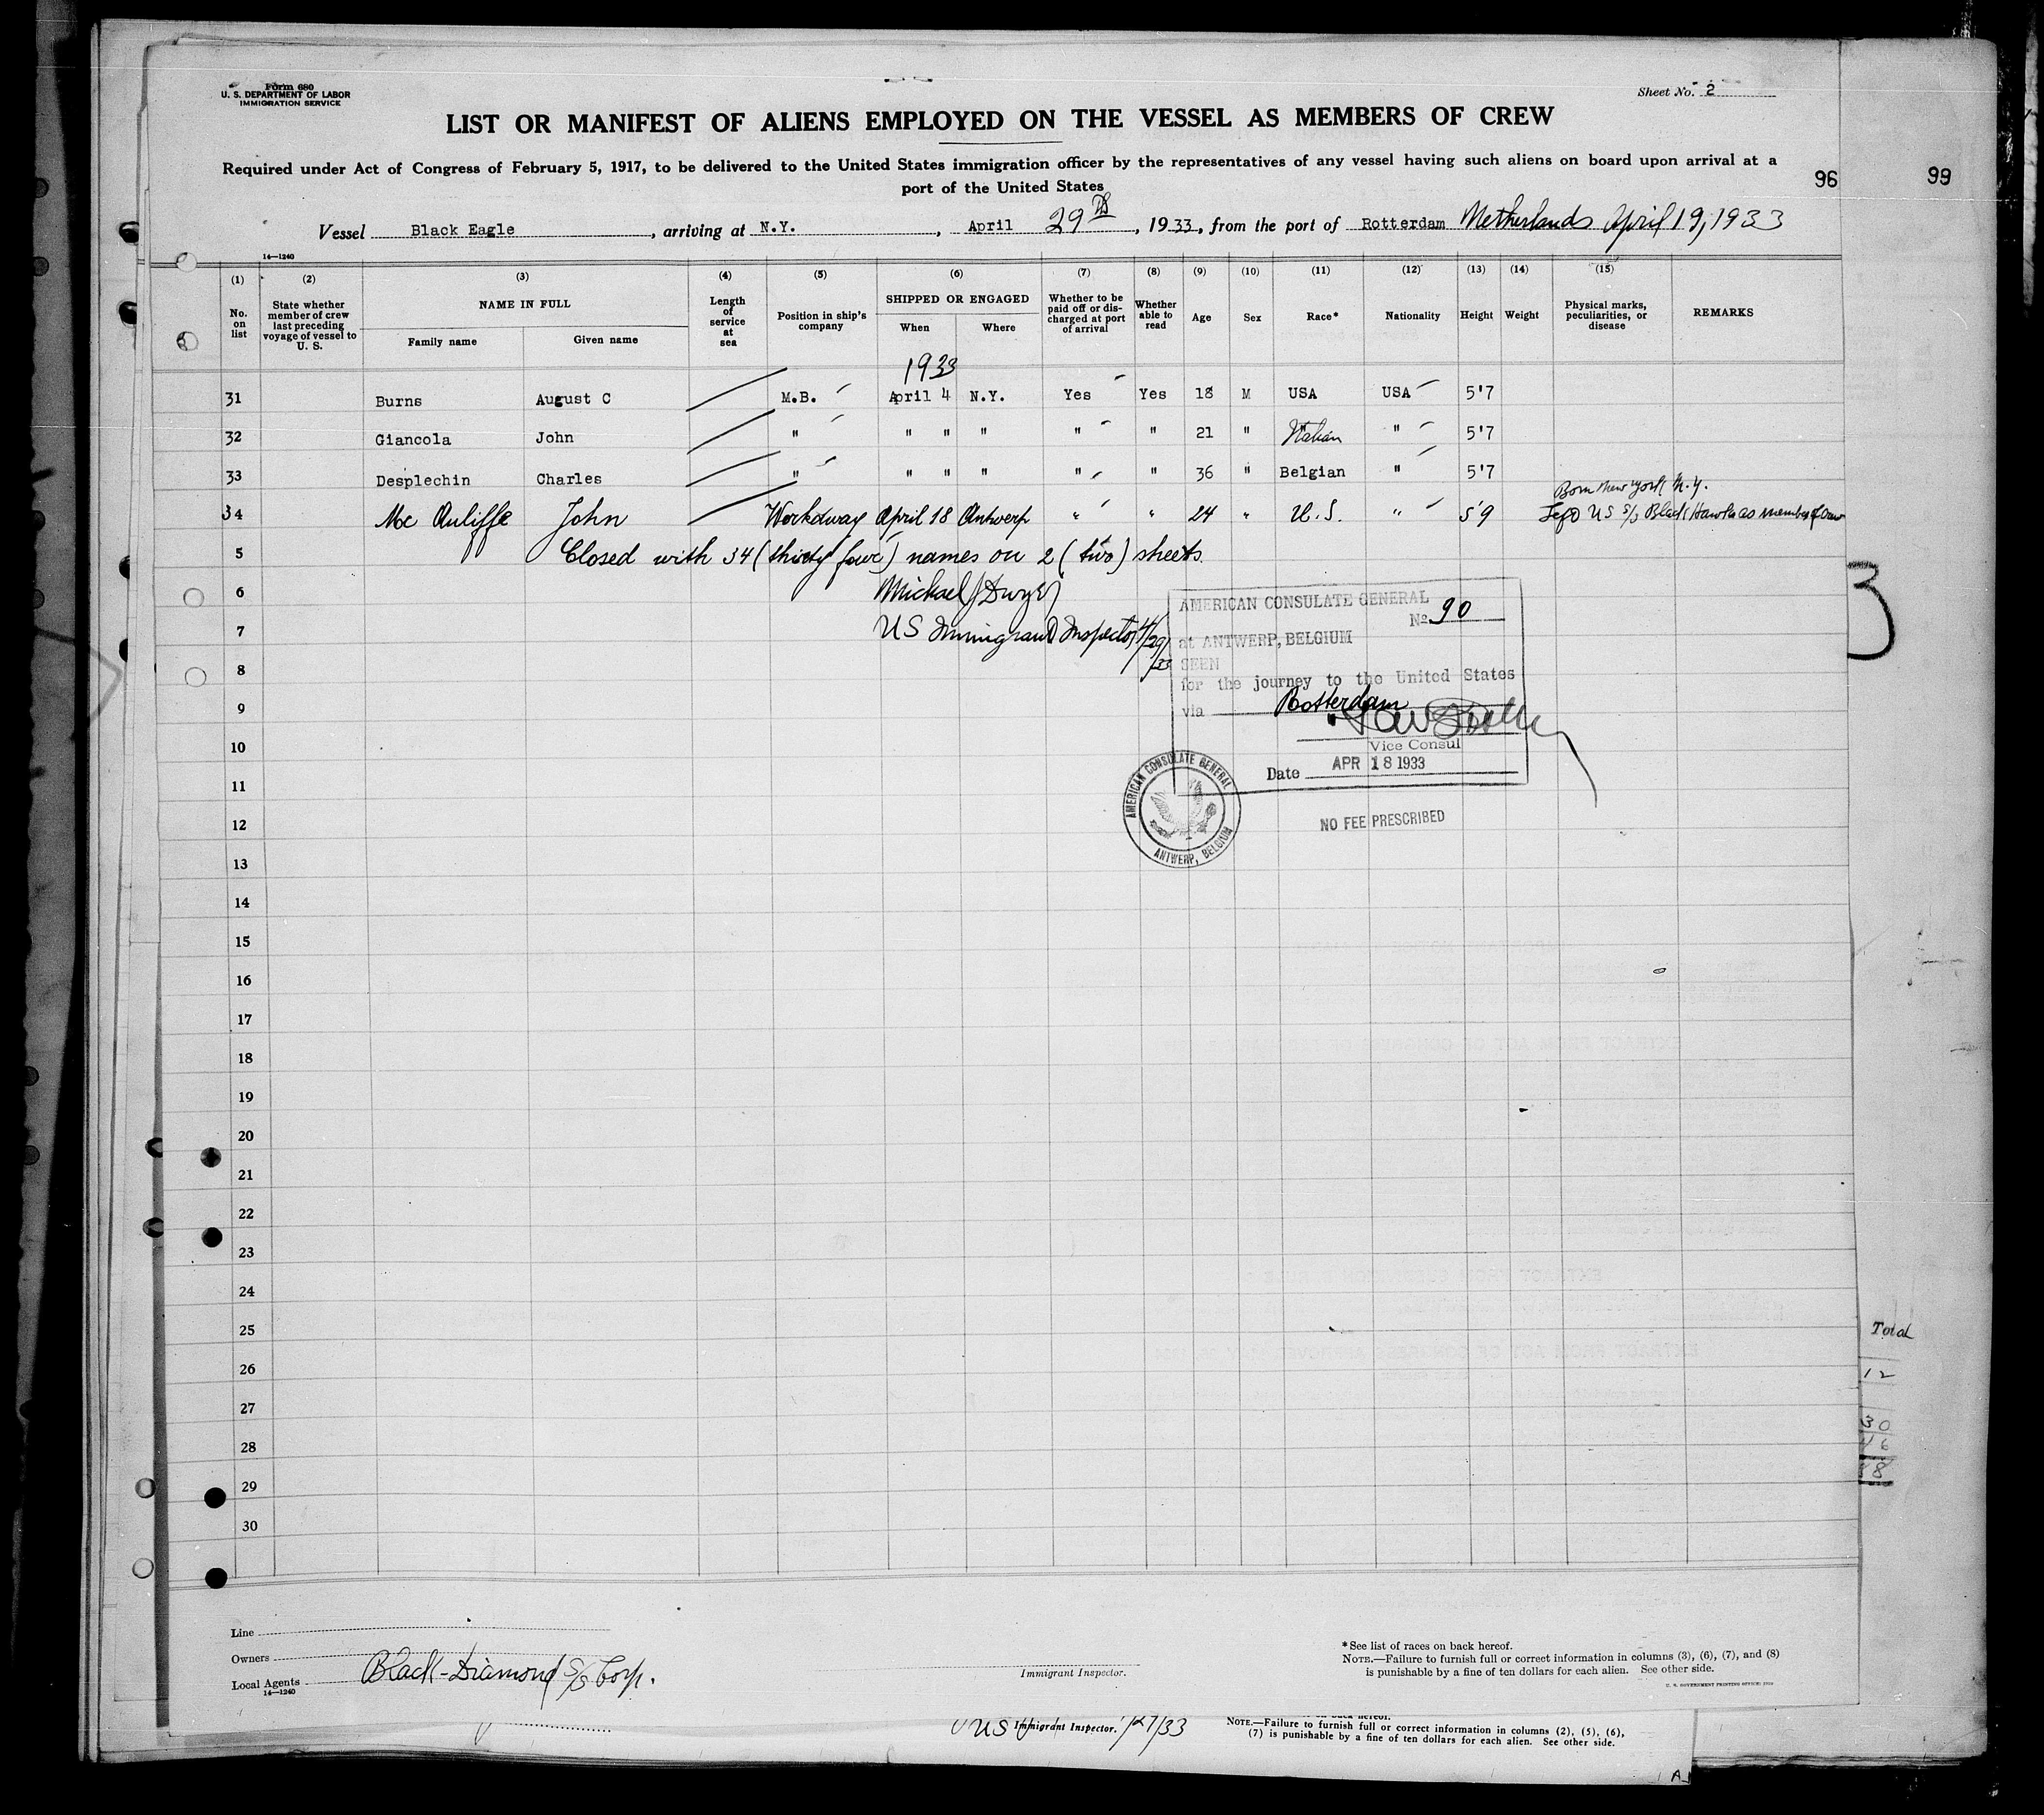 Form 680
U. S. DEPARTMENT OF LABOR
IMMIGRATION SERVICE
Sheet No. 2
LIST OR MANIFEST OF ALIENS EMPLOYED ON THE VESSEL AS MEMBERS OF CREW
Required under Act of Congress of February 5, 1917, to be delivered to the United States immigration officer by the representatives of any vessel having such aliens on board upon arrival at a
port of the United States
96
99
Vessel Black Eagle, arriving at N.Y., April 29th, 1933, from the port of Rotterdam Netherlands April 19, 1933
14—1240
(1) (2) (3) (4) (5) (6) (7) (8) (9) (10) (11) (12) (13) (14) (15)
No. on list
State whether member of crew last preceding voyage of vessel to U. S.
NAME IN FULL
Family name Given name
Length of service at sea
Position in ship's company
SHIPPED OR ENGAGED
When Where
Whether to be paid off or discharged at port of arrival
Whether able to read
Age
Sex
Race*
Nationality
Height
Weight
Physical marks, peculiarities, or disease
REMARKS
1933
31 Burns August C M.B. April 4 N.Y. Yes Yes 18 M USA USA 5'7
32 Giancola John " " " " " " 21 " Italian " 5'7
33 Desplechin Charles " " " " " " 36 " Belgian " 5'7
Born New York N.Y.
34 Mc Auliffe John Workaway April 18 Antwerp " " 24 " U.S. " 5'9 US S/S Black Hawk as member of crew
5 Closed with 34 (thirty four) names on 2 (two) sheets.
6 Michael J Dwyer
7 US Immigrant Inspector 4/29/33
8
9
10
11
12
13
14
15
16
17
18
19
20
21
22
23
24
25
26
27
28
29
30
AMERICAN CONSULATE GENERAL
No 90
at ANTWERP, BELGIUM
SEEN
for the journey to the United States
via Rotterdam
Vice Consul
Date APR 18 1933
AMERICAN CONSULATE GENERAL
ANTWERP, BELGIUM
NO FEE PRESCRIBED
3
Total
12
30
Line
Owners
Local Agents Black-Diamond S/S Corp.
14—1240
Immigrant Inspector.
*See list of races on back hereof.
NOTE.—Failure to furnish full or correct information in columns (3), (6), (7), and (8)
is punishable by a fine of ten dollars for each alien. See other side.
U. S. GOVERNMENT PRINTING OFFICE
US Immigrant Inspector.
back hereof.
NOTE.—Failure to furnish full or correct information in columns (2), (5), (6),
(7) is punishable by a fine of ten dollars for each alien. See other side.